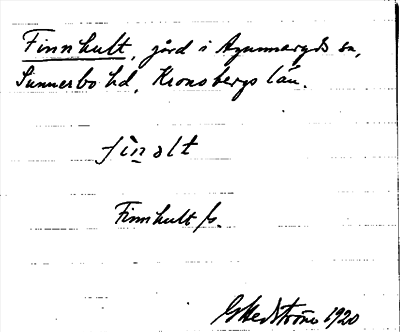 Finnhult, gård i Agunnaryds sn,
Sunnerbo hd, Kronobergs län.
fìn̲ɑlt
Finnhult ps.
G Hedström 1920